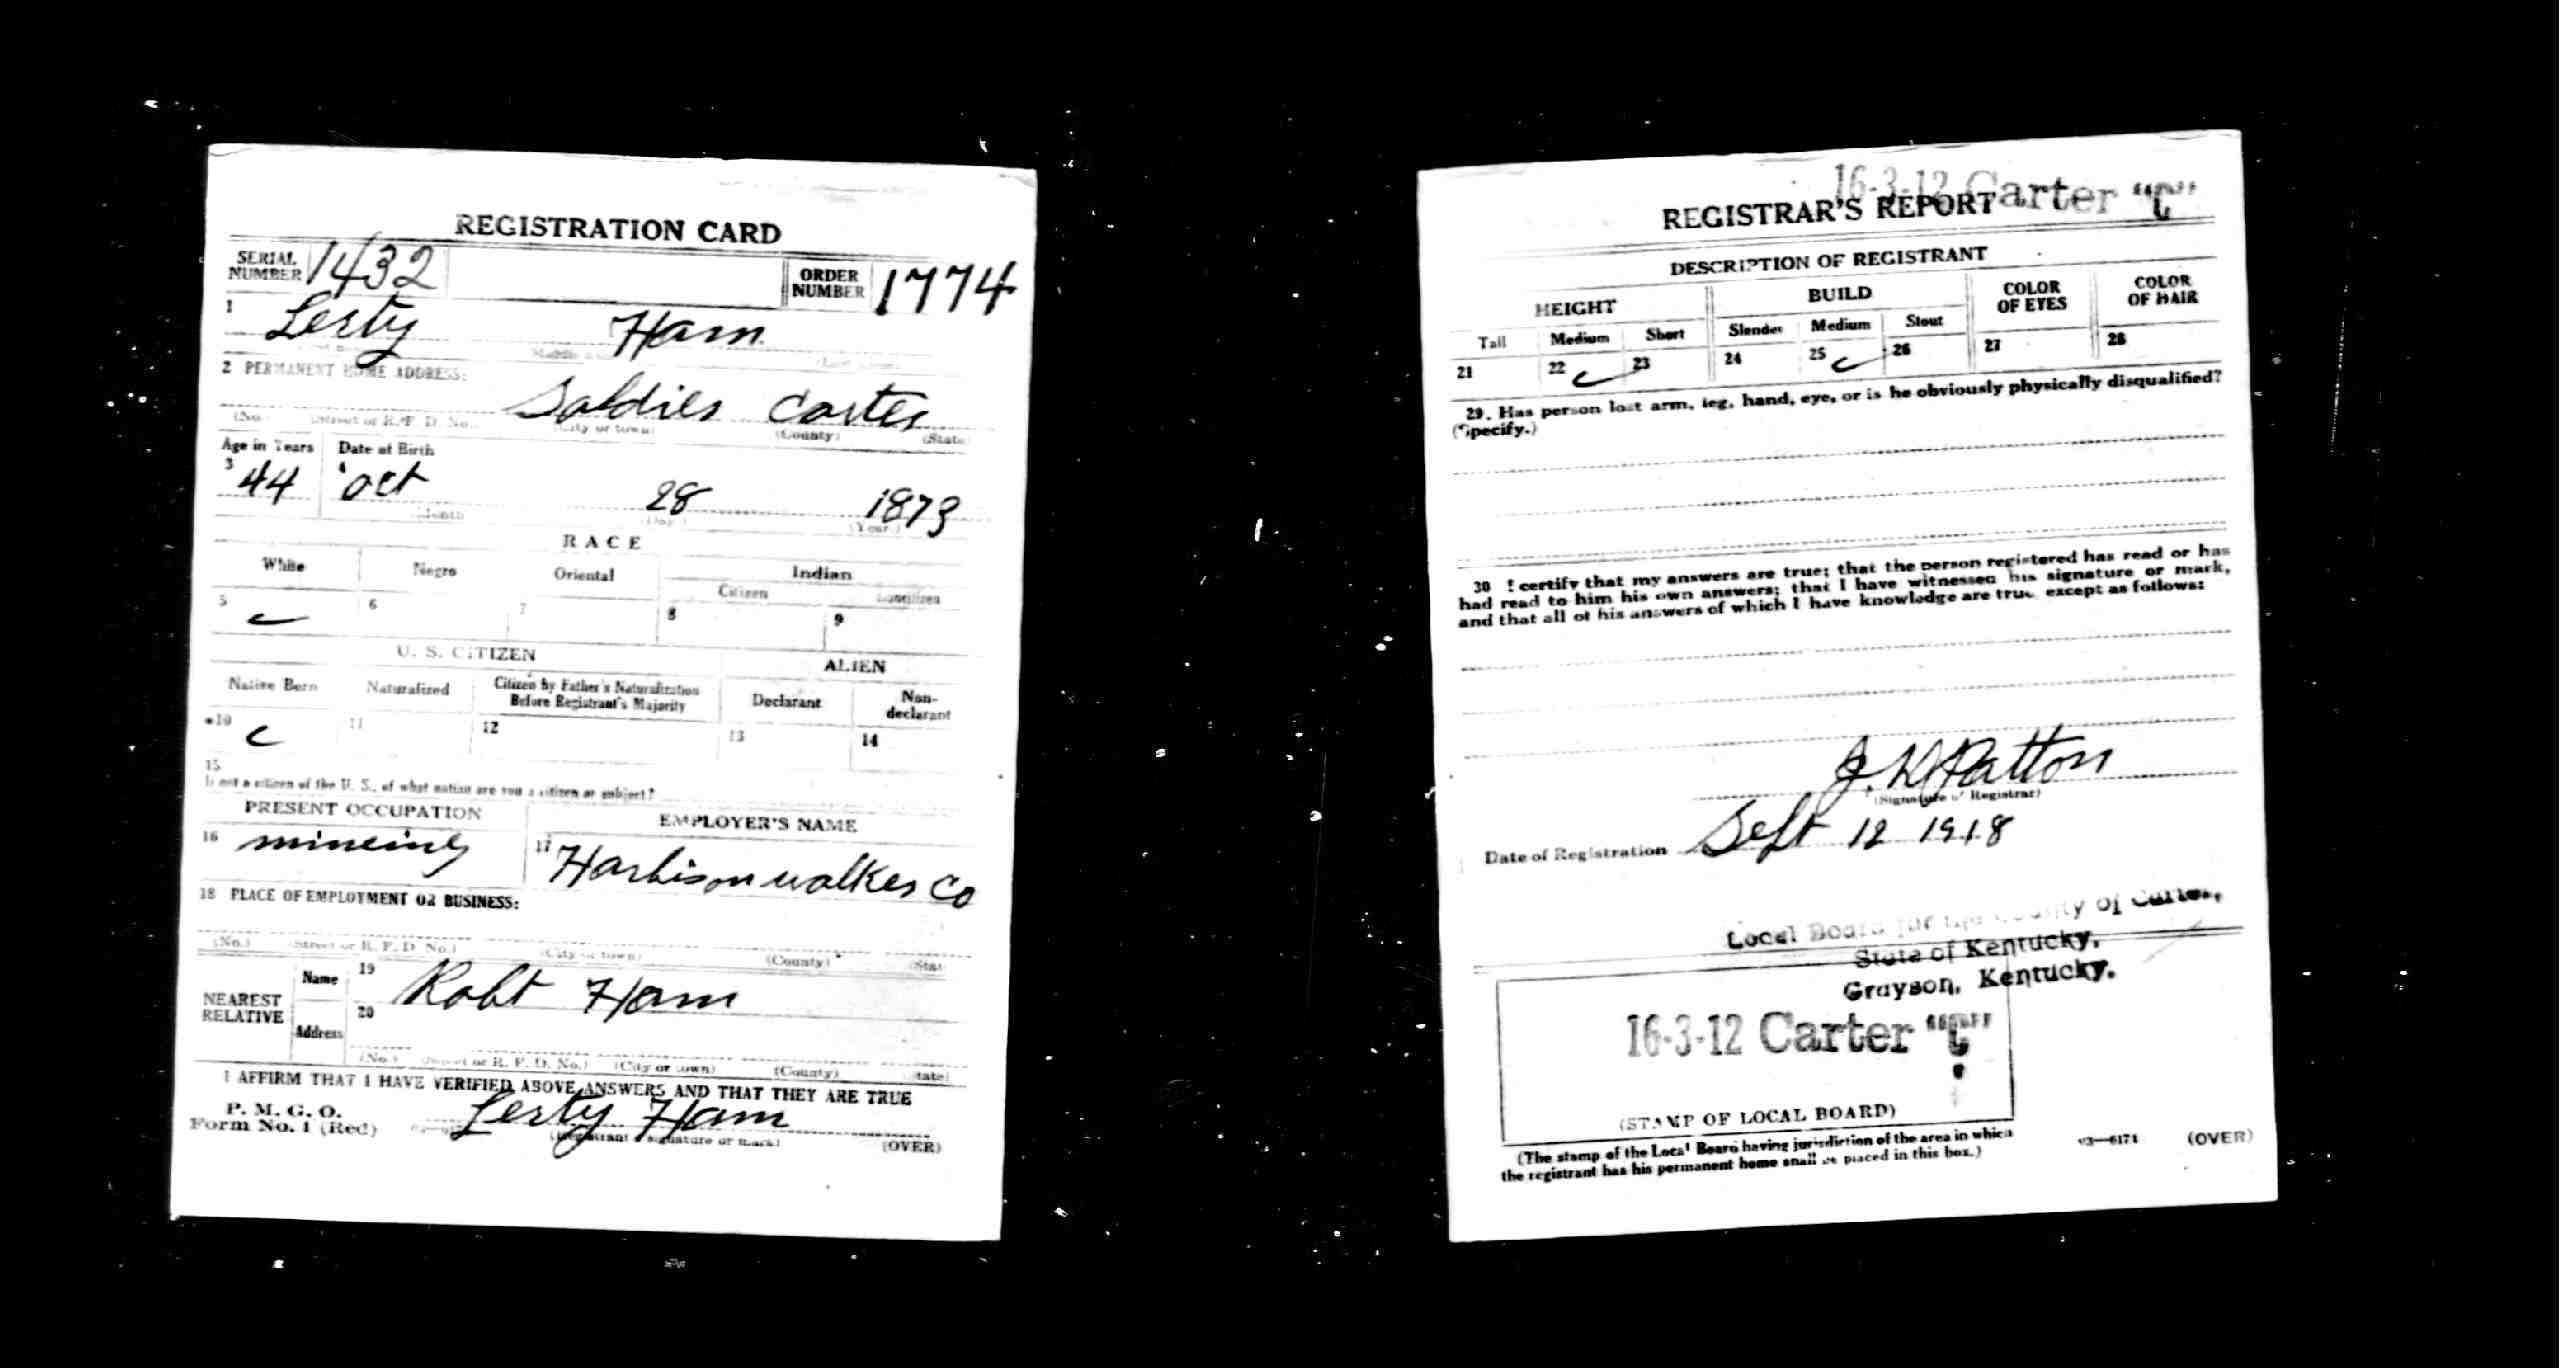 REGISTRATION CARD
SERIAL NUMBER 1432 ORDER NUMBER 1774
1 Lerty Ham
(Last name)
2 PERMANENT HOME ADDRESS:
Soldies Carter
(No.) (Street or R. F. D. No.) (City or town) (County) (State)
Age in Years Date of Birth
3 44 4 Oct 28 1873
(Month) (Day) (Year)
RACE
White Negro Oriental Indian
Citizen Noncitizen
5 6 7 8 9
U. S. CITIZEN ALIEN
Native Born Naturalized Citizen by Father's Naturalization Before Registrant's Majority Declarant Non-declarant
10 11 12 13 14
15
If not a citizen of the U. S., of what nation are you a citizen or subject?
PRESENT OCCUPATION EMPLOYER'S NAME
16 mineing 17 Harbison walker Co
18 PLACE OF EMPLOYMENT OR BUSINESS:
(No.) (Street or R. F. D. No.) (City or town) (County) (State)
NEAREST RELATIVE Name 19 Robt Ham
Address 20
(No.) (Street or R. F. D. No.) (City or town) (County) (State)
I AFFIRM THAT I HAVE VERIFIED ABOVE ANSWERS AND THAT THEY ARE TRUE
P. M. G. O.
Form No. 1 (Red) Lerty Ham
(Registrant's signature or mark) (OVER)
16-3-12 Carter "C"
REGISTRAR'S REPORT
DESCRIPTION OF REGISTRANT
HEIGHT BUILD COLOR OF EYES COLOR OF HAIR
Tall Medium Short Slender Medium Stout
21 22 23 24 25 26 27 28
29. Has person lost arm, leg, hand, eye, or is he obviously physically disqualified?
(Specify.)
30 I certify that my answers are true; that the person registered has read or has
had read to him his own answers; that I have witnessed his signature or mark,
and that all of his answers of which I have knowledge are true except as follows:
J. D. Patton
(Signature of Registrar)
Date of Registration Sept 12 1918
Local Board for the County of Carter,
State of Kentucky,
Grayson, Kentucky.
16-3-12 Carter "C"
(STAMP OF LOCAL BOARD)
(The stamp of the Local Board having jurisdiction of the area in which
the registrant has his permanent home shall be placed in this box.)
03—6171 (OVER)